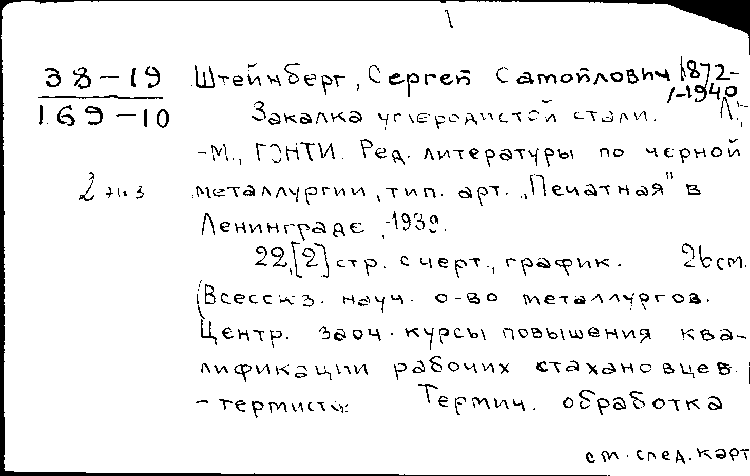 38-19 Штейнберг, Сергей Самойлович 1872-
169-10 /-1940
Закалка углеродистой стали. Л.;
-М., ГОНТИ. Ред. литературы по черной
2 экз металлургии, тип. арт. „Печатная" в
Ленинграде, 1939.
22,[2] стр. с черт., график. 26 см.
(Всесоюз. науч. о-во металлургов.
Центр. заоч. курсы повышения ква-
лификации рабочих стахановцев
-термистов Термич. обработка
см. след. карт